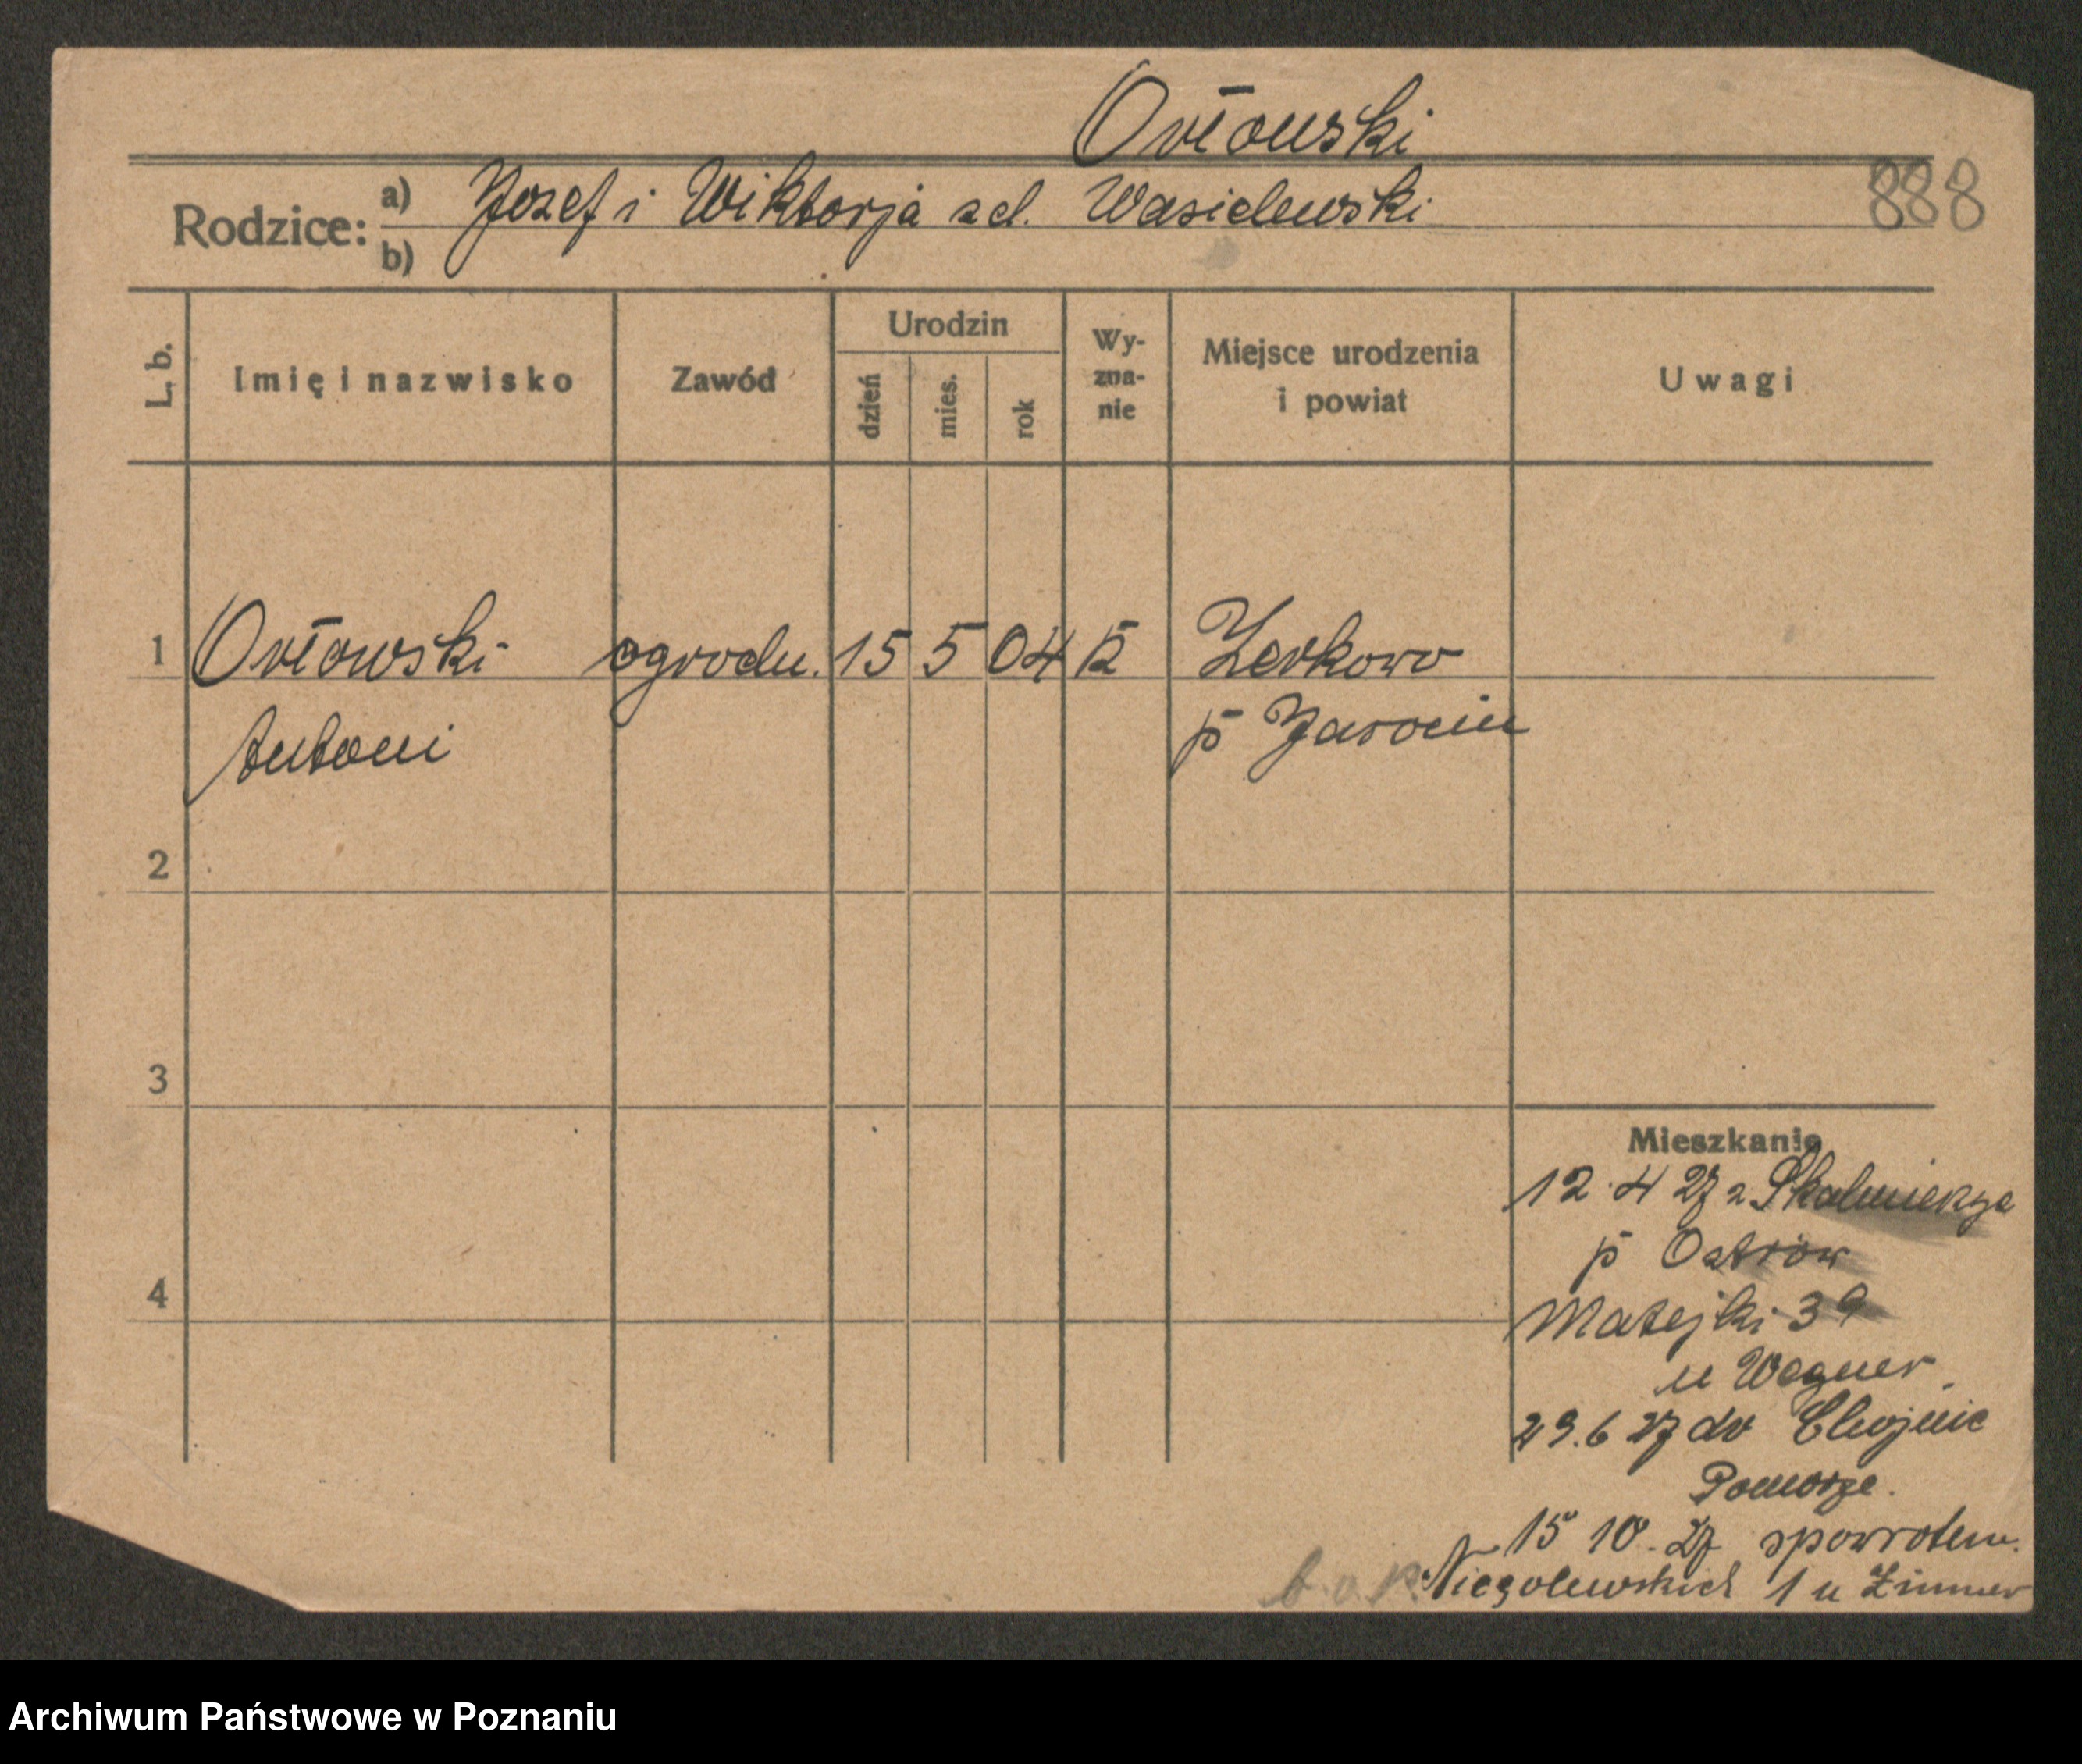 Orłowski
888
Rodzice: a) Jozef i Wiktorja zd. Wasielewski
b)
L. b. Imię i nazwisko Zawód Urodzin dzień mies. rok Wy-zna-nie Miejsce urodzenia i powiat Uwagi
1 Orłowski ogrodn. 15 5 04 k Zerkowo
Antoni p Jarocin
2
3
Mieszkanie
12.4 27 z Skalmierzyc
p Ostrów
4
Matejki 39
u Wegner
29.6 27 do Chojnic
Pomorze.
15 10. 27 spowrotem.
Niegolewskich 1 u Zimmer
Archiwum Państwowe w Poznaniu